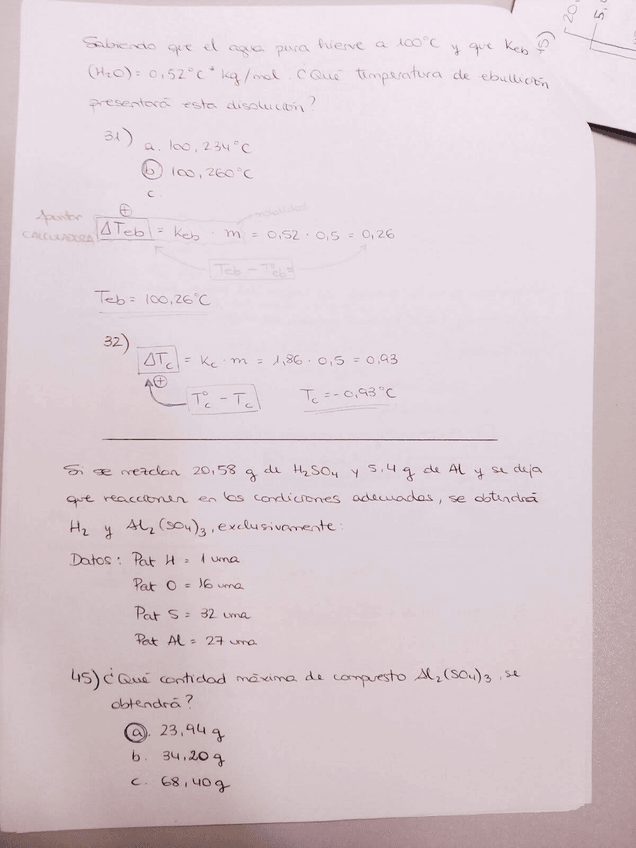 Sabiendo que el agua pura hierve a 100°C y que Keb
(H2O) = 0,52°C * kg/mol. ¿Qué temperatura de ebullición
presentará esta disolución?
31)
a. 100,234°C
b) 100,260°C
c.
⊕
molalidad
Apuntar
CALCULADORA
ΔTeb = Keb · m = 0,52 · 0,5 = 0,26
Teb - T°eb =
Teb = 100,26°C
32)
ΔTc = Kc · m = 1,86 · 0,5 = 0,93
⊕
T°c - Tc
Tc = -0,93°C
Si se mezclan 20,58 g de H2SO4 y 5,4 g de Al y se deja
que reaccionen en las condiciones adecuadas, se obtendrá
H2 y Al2(SO4)3, exclusivamente:
Datos: Pat H = 1 uma
Pat O = 16 uma
Pat S = 32 uma
Pat Al = 27 uma
45) ¿Qué cantidad máxima de compuesto Al2(SO4)3, se
obtendrá?
a. 23,94 g
b. 34,20 g
c. 68,40 g
20,